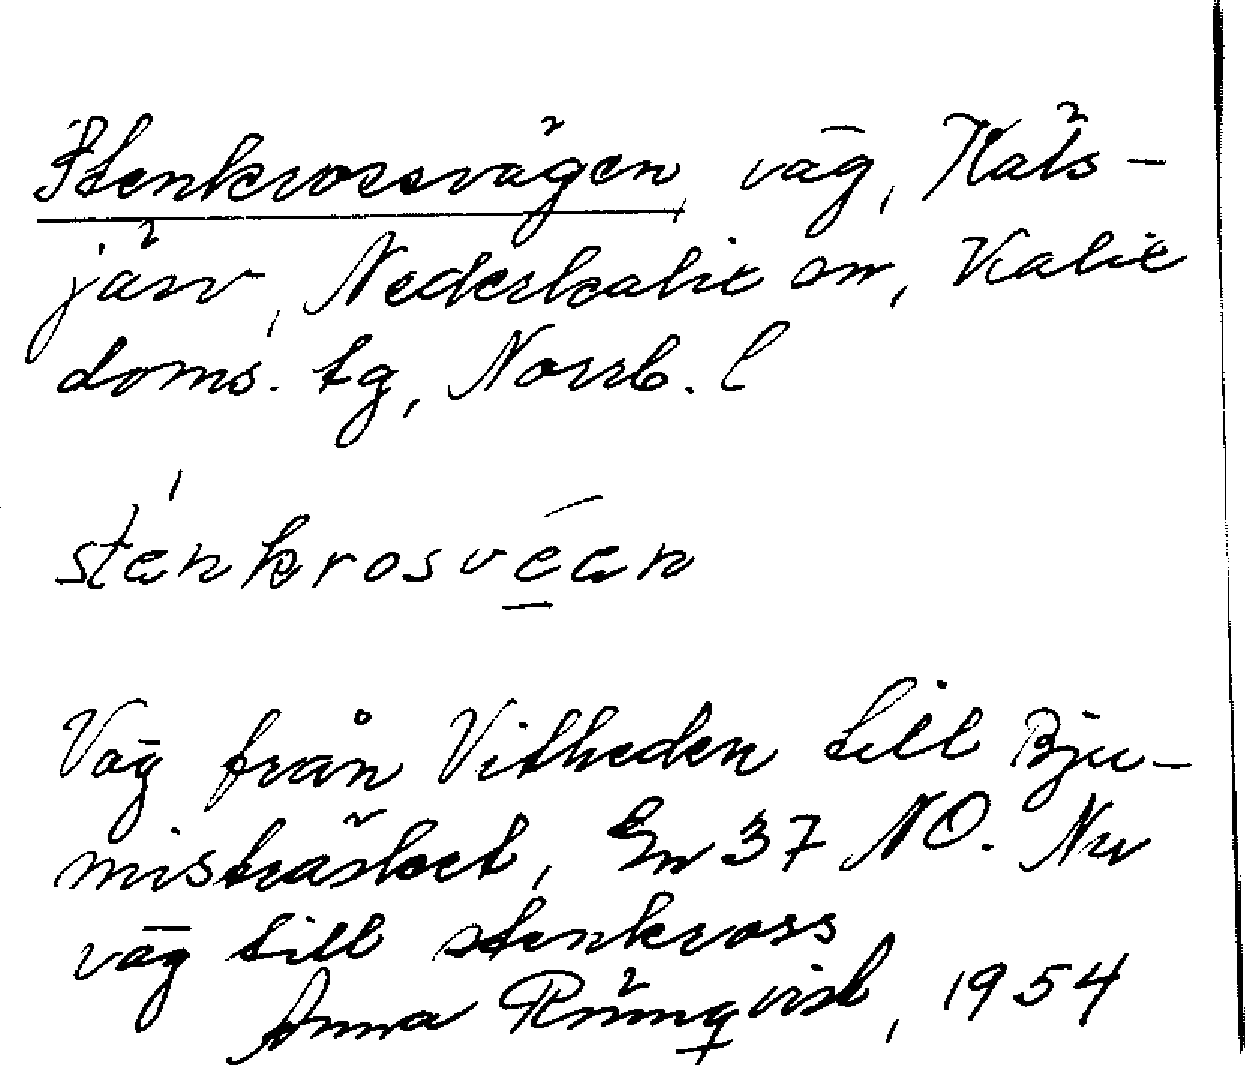 Stenkrossvägen, väg, Räks-
järv, Nederkalix sn, Kalix
doms. tg, Norrb. l
sténkrosvéan
Väg från Vitheden till Bju-
misträsket, Sn 37 NO. Nu
väg till stenkross
Anna Rönnqvist, 1954